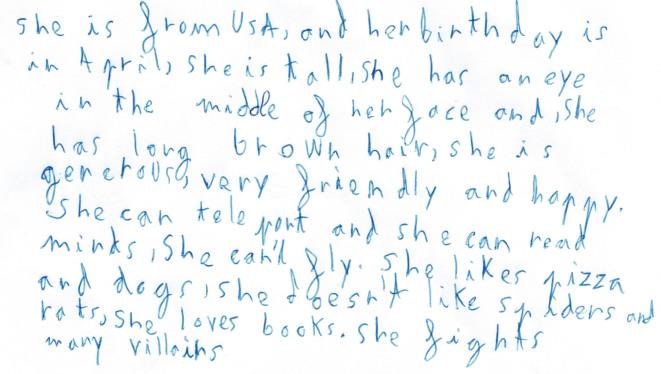 she is from USA, and her birthday is
in April, she is tall, she has an eye
in the middle of her face and, she
has long brown hair, she is
generous, very friendly and happy.
She can teleport and she can read
minds, She can't fly. She likes pizza
and dogs, she doesn't like spiders and
rats, she loves books. She fights
many villains